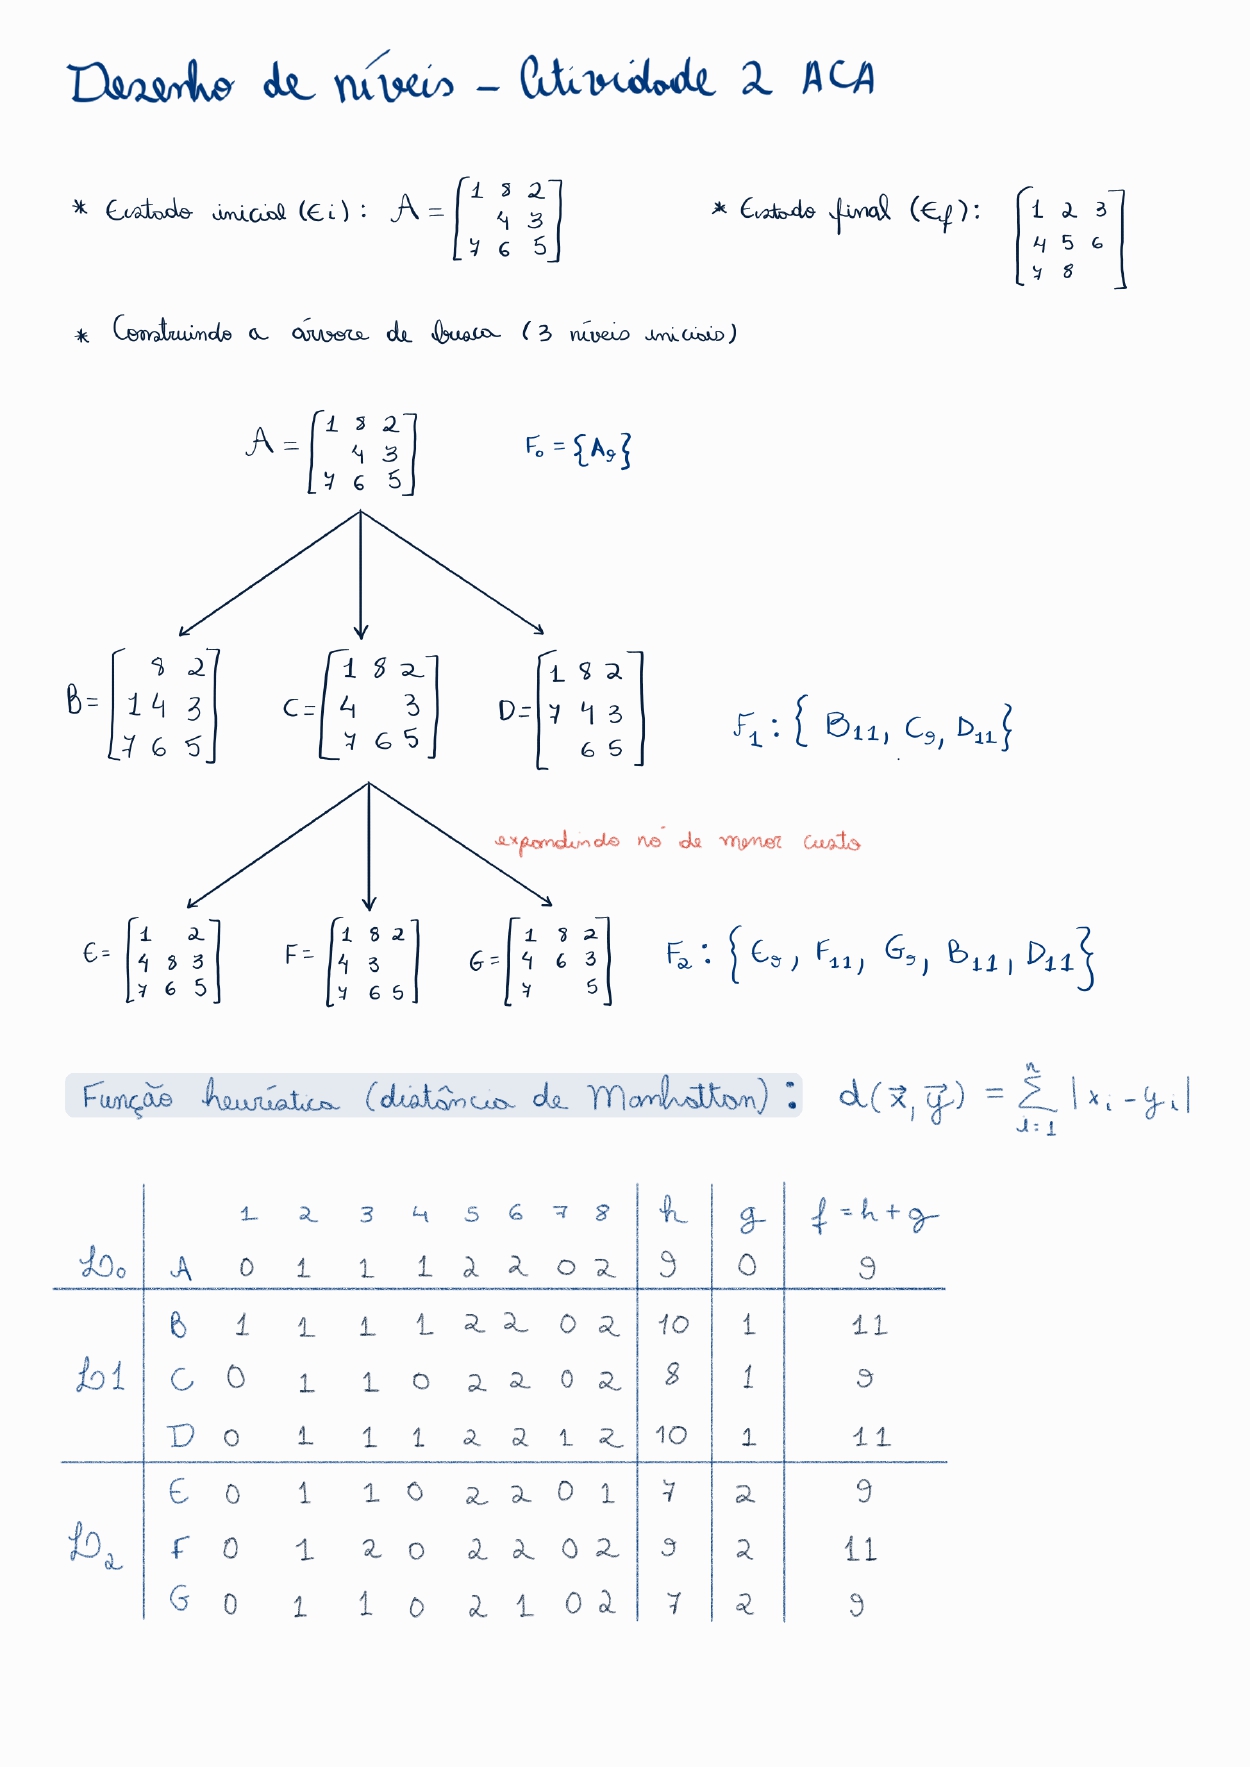 Desenho de níveis - Atividade 2 ACA
* Estado inicial (Ei): A = [1 8 2
4 3
7 6 5]
* Estado final (Ef): [1 2 3
4 5 6
7 8]
* Construindo a árvore de busca (3 níveis iniciais)
A = [1 8 2
4 3
7 6 5]
F₀ = {A₉}
B = [8 2
1 4 3
7 6 5]
C = [1 8 2
4 3
7 6 5]
D = [1 8 2
7 4 3
6 5]
F₁ : { B₁₁, C₉, D₁₁}
expandindo nó de menor custo
E = [1 2
4 8 3
7 6 5]
F = [1 8 2
4 3
7 6 5]
G = [1 8 2
4 6 3
7 5]
F₂ : {E₉, F₁₁, G₉, B₁₁, D₁₁}
Função heurística (distância de Manhattan) : d(x⃗, y⃗) = Σ i=1 n |xᵢ - yᵢ|
1 2 3 4 5 6 7 8 h g f = h + g
L₀ A 0 1 1 1 2 2 0 2 9 0 9
B 1 1 1 1 2 2 0 2 10 1 11
L1 C 0 1 1 0 2 2 0 2 8 1 9
D 0 1 1 1 2 2 1 2 10 1 11
E 0 1 1 0 2 2 0 1 7 2 9
L₂ F 0 1 2 0 2 2 0 2 9 2 11
G 0 1 1 0 2 1 0 2 7 2 9